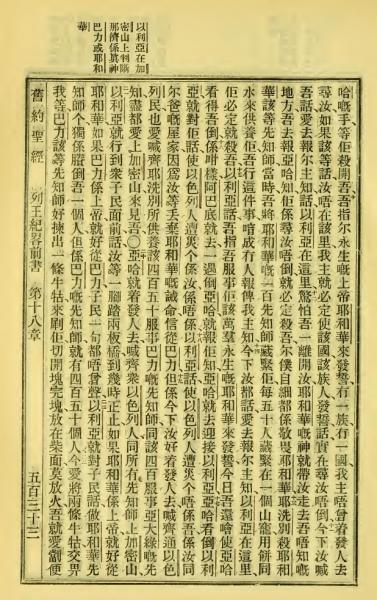 以利亞在加
密山上判斷
那濟係眞神
巴力或耶和
華
哈嘅手等佢殺開吾吾指尔永生嘅上帝耶和華來發誓冇一族冇一國我主唔曾着發人去
尋汝如果該等話汝唔在該里我主就必定使該國該族人發誓話實在尋汝唔倒今下汝喊
吾話愛去報尔主知話以利亞在這里驚怕吾一離開汝耶和華嘅神就帶汝走去吾唔知嘅
地方吾去報亞哈知佢係尋汝唔倒就必定殺吾尔僕自細都係敬畏耶和華耶洗別殺耶和
華該等先知師當時吾將耶和華嘅一百先知師藏緊佢每五十人藏緊在一個山窿用餅同
水來供養佢吾行這件事唷成冇人報俾我主知今下汝都話愛去報尔主知以利亞在這里
佢必定就殺吾以利亞話吾指吾服事佢該萬羣永生嘅耶和華來發誓今日吾還愛使亞哈
看得吾倒係咁樣阿巴底就去一遇倒亞哈就報佢知亞哈就去迎接以利亞亞哈看倒以利
亞就對佢話使以色列人遭災个係汝唔係以利亞話使以色列人遭災个唔係吾係汝同
尔爸嘅屋家因爲汝等丢棄耶和華嘅誡命信從巴力但係今下汝好着發人去喊齊通以色
列民也愛喊齊耶洗別所供養該四百五十服事巴力嘅先知師同該四百服事亞大綠嘅先
知盡都愛上加密山來見吾〇亞哈就着發人去喊齊衆以色列人同所有先知師上加密山
以利亞就行到衆子民面前話汝等一腳踏兩板橋到幾時正止如果耶和華係上帝就好從
耶和華如果巴力係上帝就好從巴力子民一句都唔曾聲以利亞就對子民話做耶和華先
知師个獨係賸倒吾一個人但係巴力嘅先知師就有四百五十個人今愛將兩條牛牯交畀
我等巴力該等先知師好揀出一條牛牯來劏佢切開塊完塊放在柴面莫放火吾就愛劏便
舊約聖經 列王紀畧前書 第十八章 五百三十三